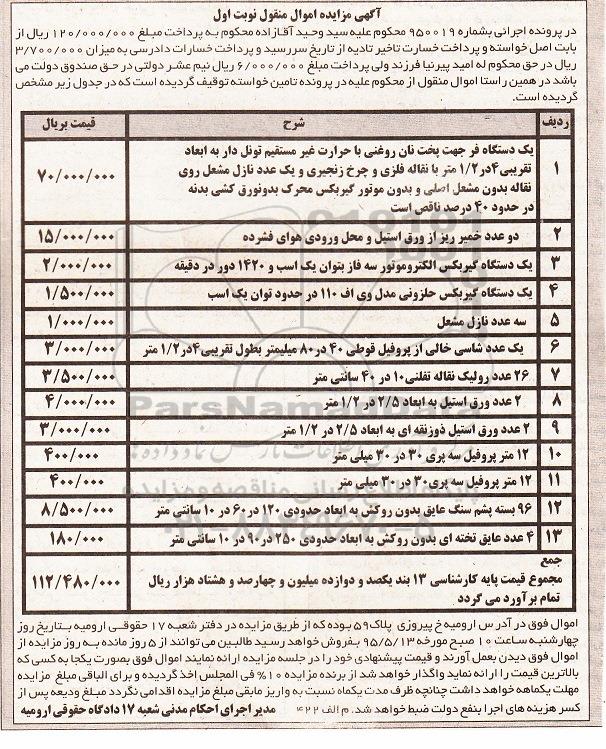 آگهی مزایده اموال منقول نوبت اول
در پرونده اجرائی بشماره ۹۵۰۰۱۹ محکوم علیه سید وحید آقازاده محکوم به پرداخت مبلغ ۱۲۰/۰۰۰/۰۰۰ ریال از
بابت اصل خواسته و پرداخت خسارت تاخیر تادیه از تاریخ سررسید و پرداخت خسارات دادرسی به میزان ۳/۷۰۰/۰۰۰
ریال در حق محکوم له امید پیرنیا فرزند ولی پرداخت مبلغ ۶/۰۰۰/۰۰۰ ریال نیم عشر دولتی در حق صندوق دولت می
باشد در همین راستا اموال منقول از محکوم علیه در پرونده تامین خواسته توقیف گردیده است که در جدول زیر مشخص
گردیده است.
ردیف شرح قیمت بریال
۱ یک دستگاه فر جهت پخت نان روغنی با حرارت غیر مستقیم تونل دار به ابعاد
تقریبی۴در۱/۲ متر با نقاله فلزی و چرخ زنجیری و یک عدد نازل مشعل روی
نقاله بدون مشعل اصلی و بدون موتور گیربکس محرک بدونورق کشی بدنه
در حدود ۴۰ درصد ناقص است ۷۰/۰۰۰/۰۰۰
۲ دو عدد خمیر ریز از ورق استیل و محل ورودی هوای فشرده ۱۵/۰۰۰/۰۰۰
۳ یک دستگاه گیربکس الکتروموتور سه فاز بتوان یک اسب و ۱۴۲۰ دور در دقیقه ۲/۰۰۰/۰۰۰
۴ یک دستگاه گیربکس حلزونی مدل وی اف ۱۱۰ در حدود توان یک اسب ۱/۵۰۰/۰۰۰
۵ سه عدد نازل مشعل ۱/۰۰۰/۰۰۰
۶ یک عدد شاسی خالی از پروفیل قوطی ۴۰ در۸۰ میلیمتر بطول تقریبی۴در۱/۲ متر ۳/۰۰۰/۰۰۰
۷ ۲۶ عدد رولیک نقاله تفلنی۱۰ در ۴۰ سانتی متر ۳/۵۰۰/۰۰۰
۸ ۲ عدد ورق استیل به ابعاد ۲/۵ در ۱/۲ متر ۴/۰۰۰/۰۰۰
۹ ۲ عدد ورق استیل ذوزنقه ای به ابعاد ۲/۵ در ۱/۲ متر ۳/۰۰۰/۰۰۰
۱۰ ۱۲ متر پروفیل سه پری ۳۰ در ۳۰ میلی متر ۴۰۰/۰۰۰
۱۱ ۱۲ متر پروفیل سه پری۳۰ در ۳۰ میلی متر ۴۰۰/۰۰۰
۱۲ ۹۶ بسته پشم سنگ عایق بدون روکش به ابعاد حدودی ۱۲۰ در۶۰ در ۱۰ سانتی متر ۸/۵۰۰/۰۰۰
۱۳ ۴ عدد عایق تخته ای بدون روکش به ابعاد حدودی ۲۵۰ در۹۰ در ۱۰ سانتی متر ۱۸۰/۰۰۰
جمع
مجموع قیمت پایه کارشناسی ۱۳ بند یکصد و دوازده میلیون و چهارصد و هشتاد هزار ریال
تمام برآورد می گردد ۱۱۲/۴۸۰/۰۰۰
اموال فوق در آدرس ارومیه خ پیروزی پلاک۵۹ بوده که از طریق مزایده در دفتر شعبه ۱۷ حقوقی ارومیه بتاریخ روز
چهارشنبه ساعت ۱۰ صبح مورخه ۹۵/۵/۱۳ بفروش خواهد رسید طالبین می توانند از ۵ روز مانده به روز مزایده از
اموال فوق دیدن بعمل آورند و قیمت پیشنهادی خود را در جلسه مزایده ارائه نمایند اموال فوق بصورت یکجا به کسی که
بالاترین قیمت را ارائه نماید واگذار خواهد شد از برنده مزایده ۱۰% فی المجلس اخذ گردیده و برای الباقی مبلغ مزایده
مهلت یکماهه خواهد داشت چنانچه ظرف مدت یکماه نسبت به واریز مابقی مبلغ مزایده اقدامی نگردد مبلغ ودیعه پس از
کسر هزینه های اجرا بنفع دولت ضبط خواهد شد. م الف ۴۲۲ مدیر اجرای احکام مدنی شعبه ۱۷ دادگاه حقوقی ارومیه
ParsNamadData